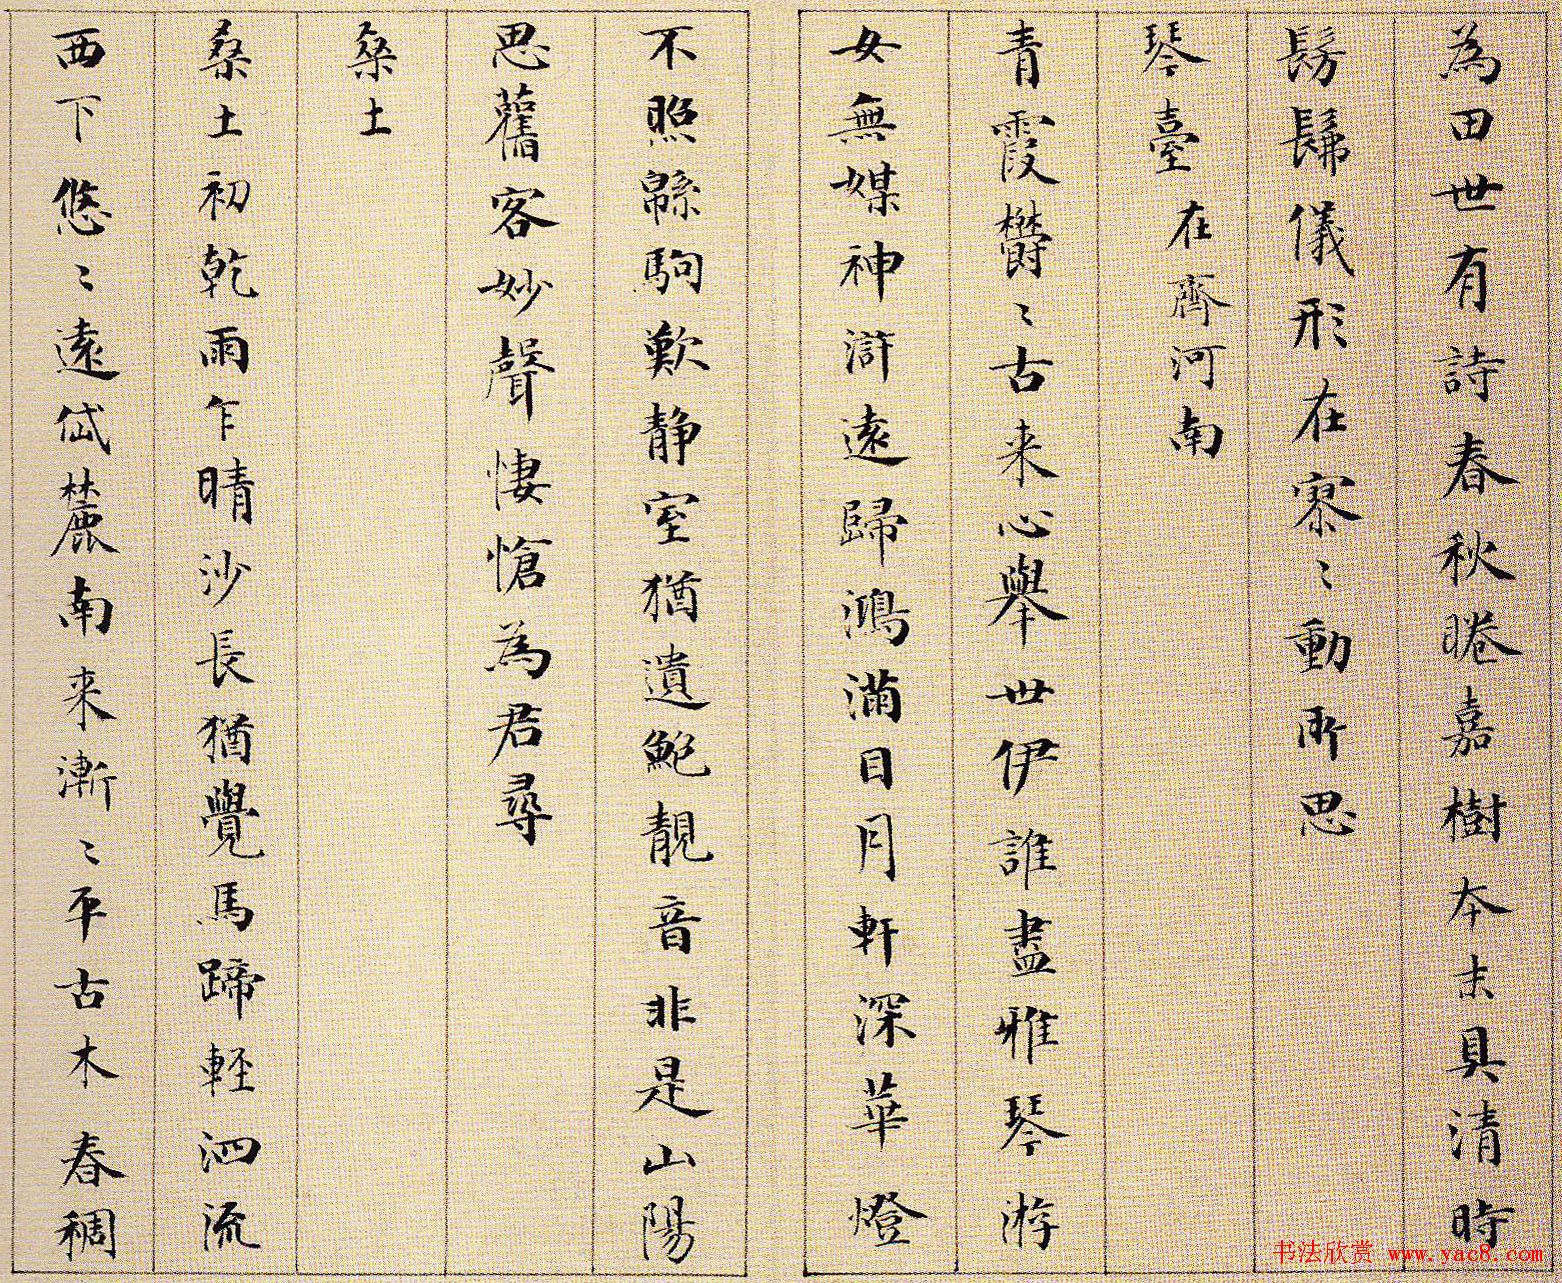 為田世有詩春秋睠嘉樹本末具清時
髣髴儀形在寥〻動所思
琴臺 在齊河南
青霞欝〻古来心舉世伊誰盡雅琴游
女無媒神滸遠歸鴻滿目月軒深華燈
不照緜駒歎静室猶遺鮑靚音非是山陽
思舊客妙聲悽愴為君尋
桑土
桑土初乾雨乍晴沙長猶覺馬蹄輕泗流
西下悠〻遠岱麓南来漸〻平古木春稠
书法欣赏 www.yac8.com